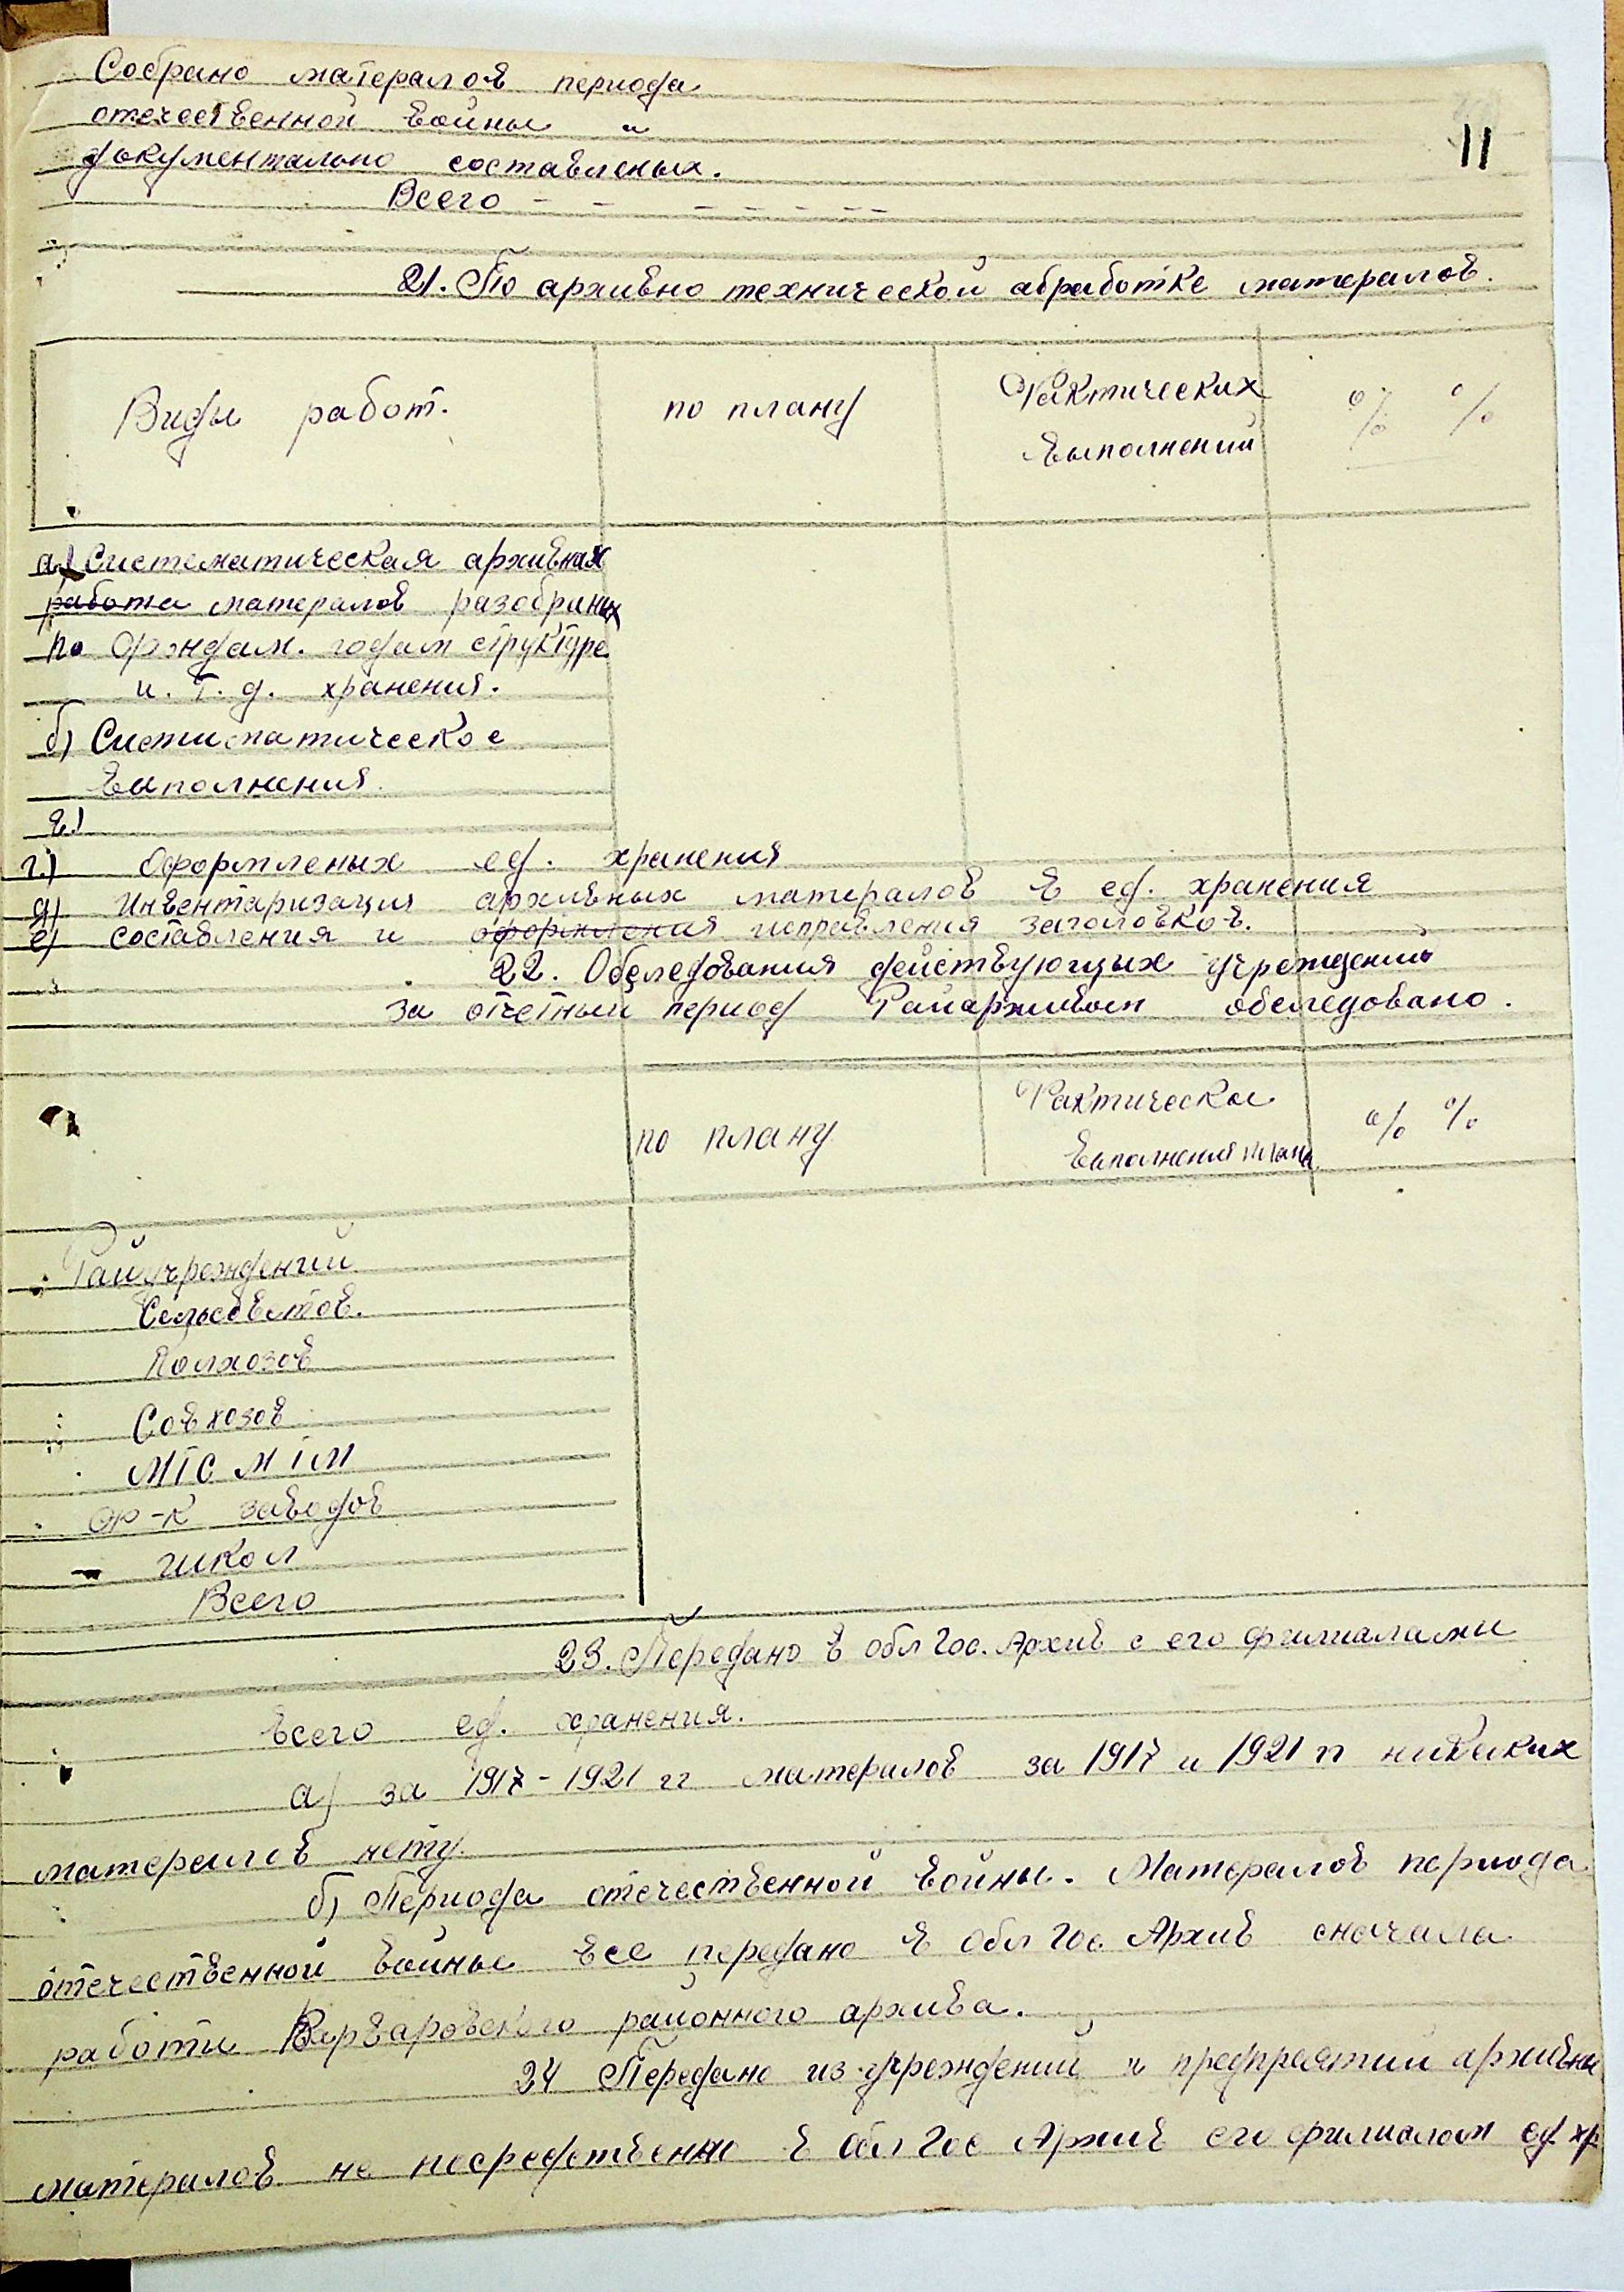 11
Собрано матералов периода
отечественной войны и
документально составленых.
Всего - - - - - - - -
21. По архивно технической абработке матералов.
Виды работ. по плану Фактических % %
выполнений
а) Систематическая архивная
работа матералов разобраных
по фондам. годам структуре
и. т. д. хранения.
б) Систиматическое
выполнения.
в)
г.) Оформленых ед. хранения
д) Инвентаризация архивных матералов в ед. хранения
е) составления и оформления исправления заголовков.
22. Обследования действующых учреждений
за отчетный период Райархивом обследовано.
по плану Фактическое % %
выполнения плана
Райучреждений
Сельсоветов.
Колхозов
Совхозов
МТС МТМ
Ф-к заводов
школ
Всего
23. Передано в обл Гос. Архив с его филиалами
всего ед. хранения.
а) за 1917-1921 гг матералов за 1917 и 1921 гг никаких
матералов нету.
б) Периода отечественной войны. Матералов периода
отечественной войны все передано в Обл Гос. Архив сначала
работи Варваровского районного архива.
24 Передано из учреждений и предпреятий архивны
матералов не посредственно в Обл Гос Архив его филиалом ед. хр.